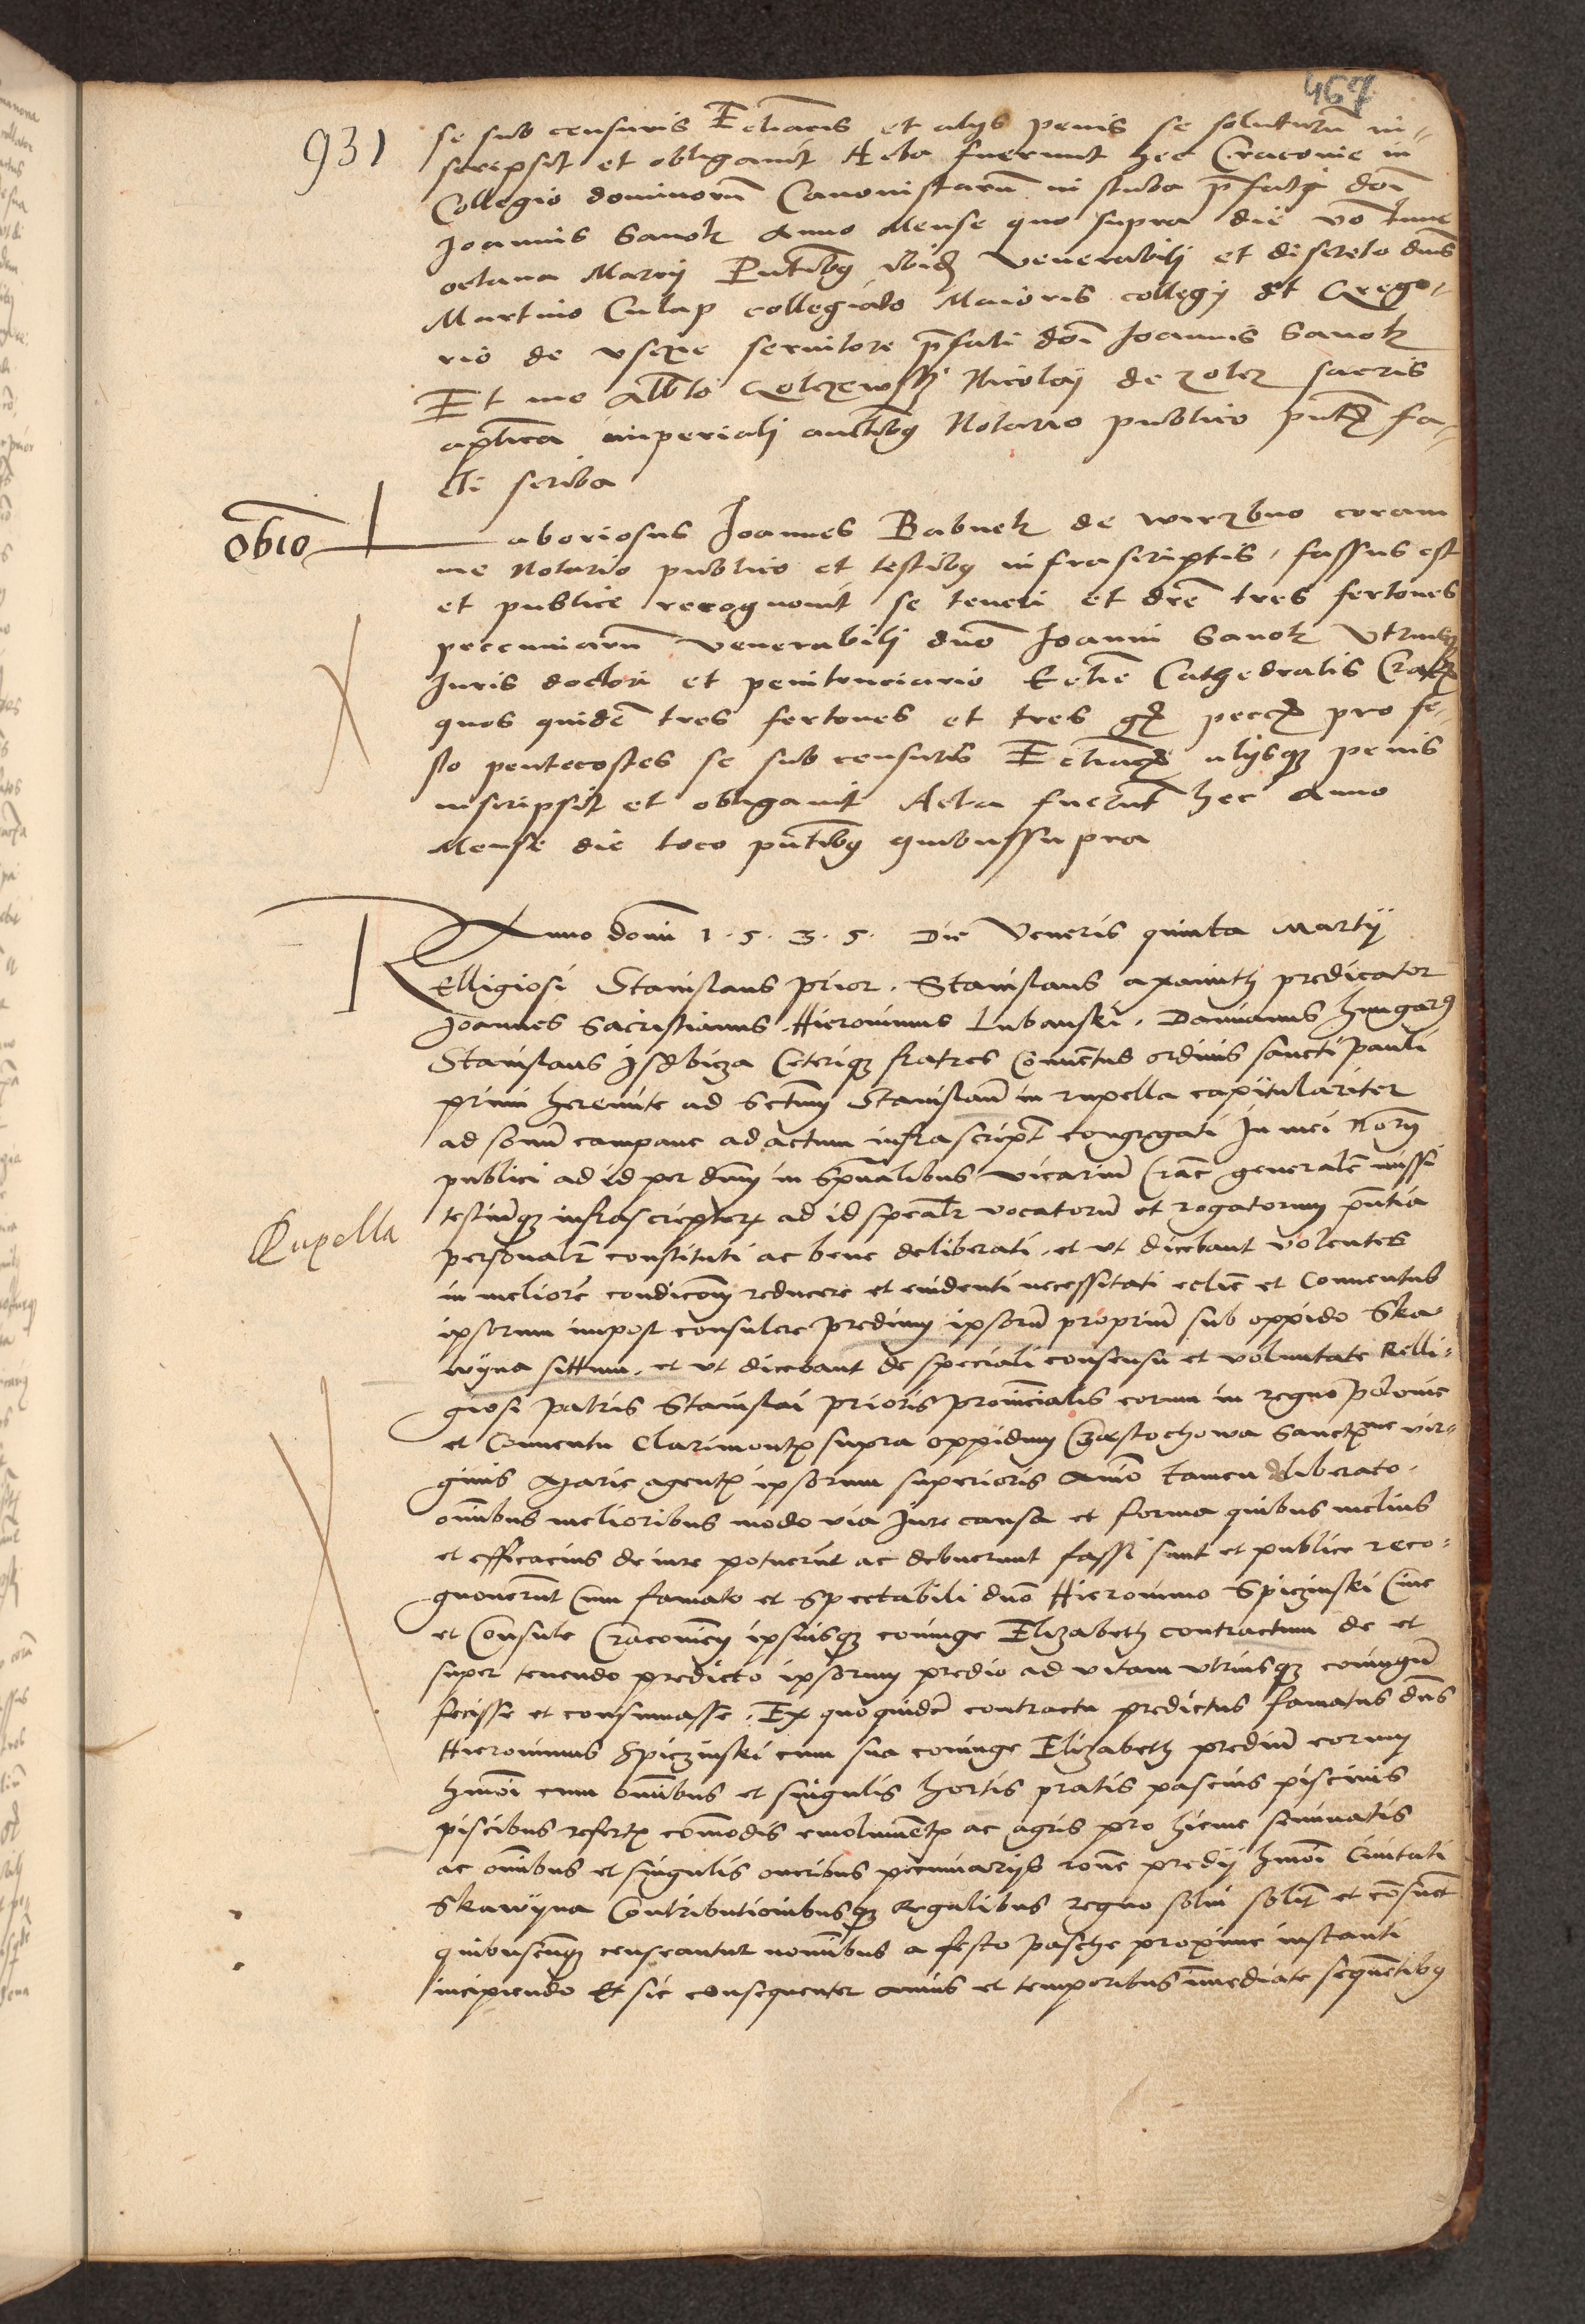 467
931
se sub censuris Ecliacis et alys penis se soluturu in-
scripsit et obligauit Acta fuerunt hec Cracouie in
Collegio dominoru Canonistaru in stuba pfati doi
Joannis Sanok Anno Mense quo supra die vo tunc
octaua Marcij Pntibus ibid venerabilj et discreto dnis
Martino Culap collegiato Maioris collegij et Grego-
rio de seruitore pfati doi Joannis Sanok
Et me Alberto Nicolaj de sacris
aplica imperialj auctibus Notario publico pntis fa-
cti scriba
Obio
Laboriosus Joannes Babuek de wirzbno coram
me Notario publico et testibus infrascriptis, fassus est
et publice recognouit se teneri et dre tres fertones
peccuniaru venerabilj dno Joanni Sanok Vtriusque
Juris doctori et penitenciario Eclie Cathedralis Crac
quos quide tres fertones et tres gr pecc pro fe-
sto pentecostes se sub censuris Ecliacis alysque penis
inscripsit et obligauit Acta fuerut hec Anno
Mense die loco pntibus quibussupra
Anno domi 1.5.3.5. Die Veneris quinta Martij
Relligiosi Stanislaus prior. Stanislaus predicator
Joannes Sacristianus. Hieronimus Lubanski. Damianus hungarus
Stanislaus Isdbicza Ceterique fratres Conuentus ordinis sancti pauli
primi heremite ad Sctum Stanislau in rupella capitulariter
ad sonu campane ad actum infrascript congregati In mei Norij
publici ad id per dnm in spualibus vicariu Crac generale missi
testiumque infrascriptor ad id specalr vocatoru et rogatorum pntia
personalr constituti ac bene deliberati. et vt dicebant volentes
Rupella
in meliore condicom reducere et euidenti necessitati eclie et Conuentus
ipsorum impost consulere predium ipsoru propriu sub oppido Ska
wyna sittum. et vt dicebant de speciali consensu et voluntate Relli-
giosi patris Stanislai prioris prouincialis eorum in regno polonie
et Conuentu Clarimontis supra oppidum Czastochowa Sanctme vir-
ginis Marie agentis ipsorum superioris Animo tamen deliberato.
omnibus melioribus modo via Jure causa et forma quibus melius
et efficacius de iure potuerut ac debuerunt fassi sunt et publice reco-
gnouerut Cum famato et Spectabili dno Hieronimo Spiczinski Ciue
et Consule Cracouien ipsiusque coniuge Elizabeth contractum de et
super tenendo predicto ipsorum predio ad vitam vtriusque coniugu
fecisse et consumasse. Ex quoquide contractu predictus famatus dns
Hieronimus Spiczinski cum sua coniuge Elizabeth prediu eorum
hmoi cum omibus et singulis hortis pratis pascuis piscinis
piscibus refertis comodis emolumetis ac agris pro hieme seminatis
ac omibus et singulis oneribus pecuniariys rone predij hmoi Ciuitati
Skawyna Contributionibusque Regalibus regno solui solit et consuet
quibuscunque censeantur nomibus a festo pasche proxime instanti
incipiendo Et sic consequenter annis et temporibus immediate sequetibus